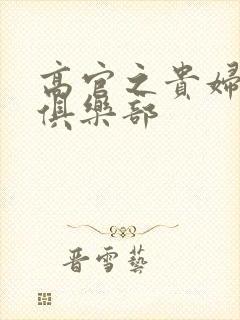 高官之貴婦
俱樂部
晋雪藝